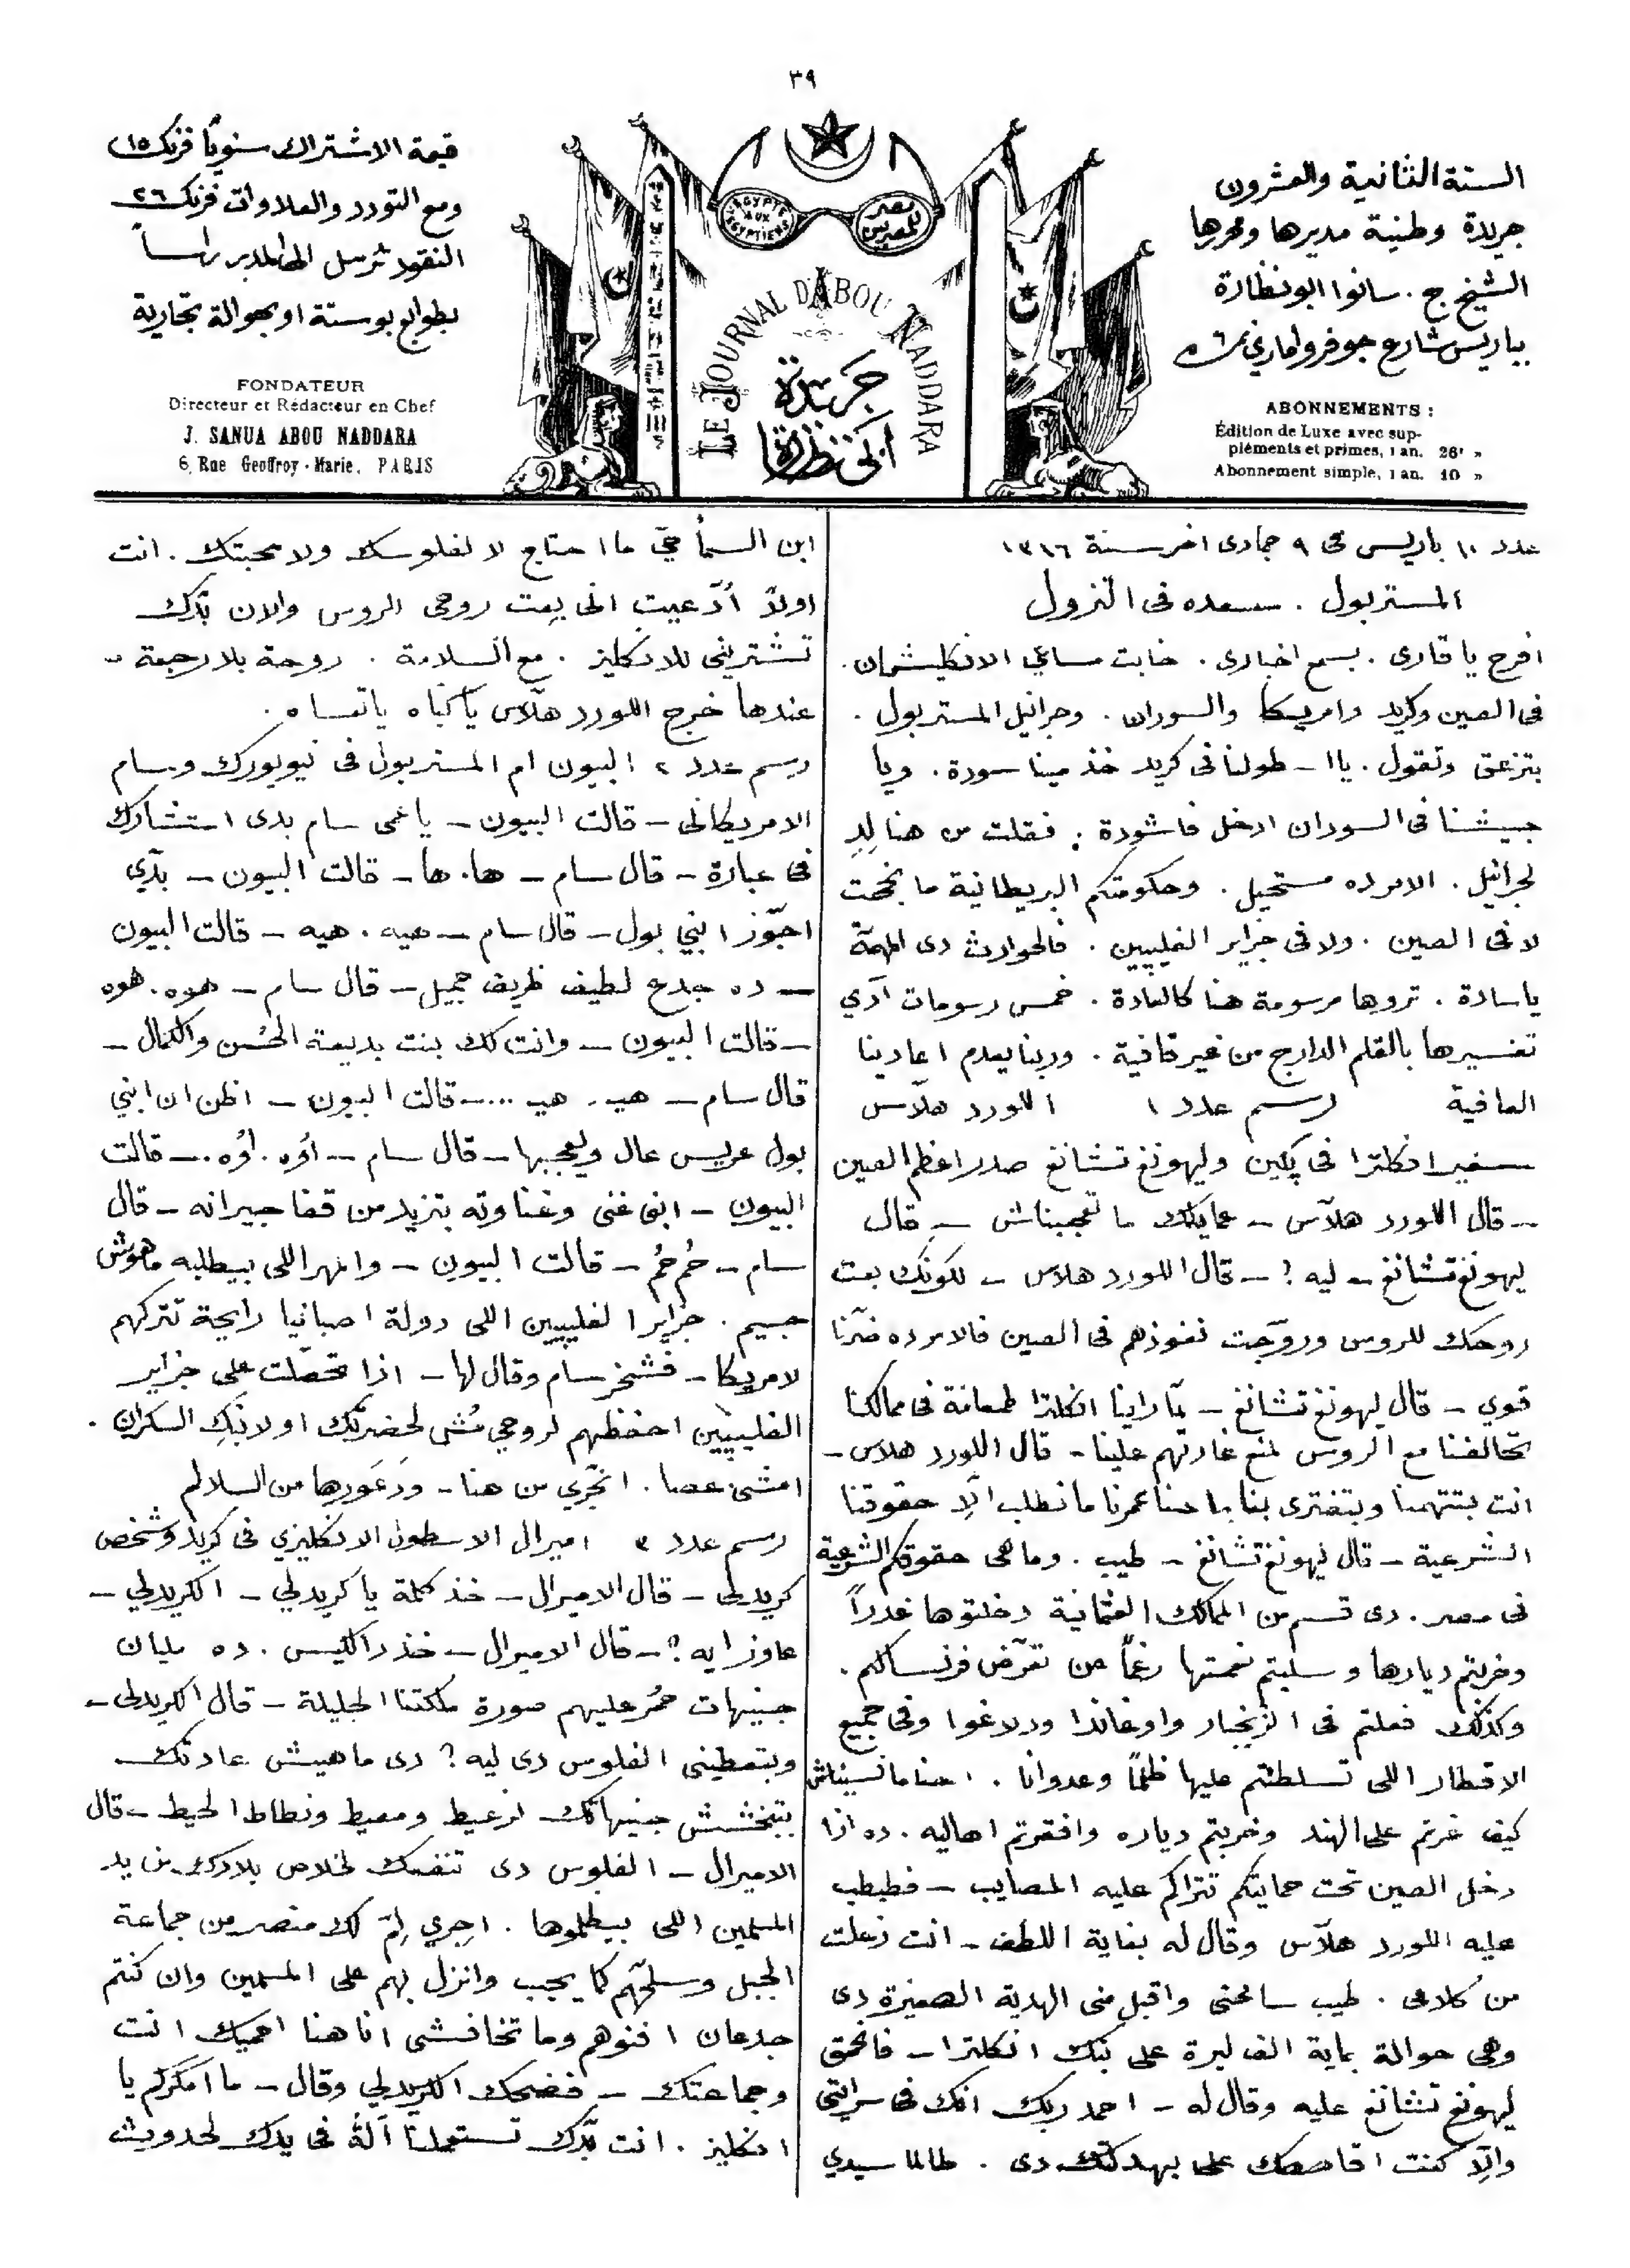 ٣٩
السنة الثانية والعشرون
جريدة وطنية مديرها ومحررها
الشيخ ج. سانوا ابو نظارة
بباريس شارع جوفروا ماري ٦
ABONNEMENTS :
Édition de Luxe avec sup-
pléments et primes, 1 an. 26f »
Abonnement simple, 1 an. 10 »
EGYPTE AUX EGYPTIENS
مصر للمصريين
LE JOURNAL D'ABOU NADDARA
جريدة
ابي نظارة
قيمة الاشتراك سنويًا فرنك ١٥
ومع التودد والعلاوات فرنك ٢٦
النقود ترسل الى المدير راساً
بطوابع بوستة او بحوالة تجارية
FONDATEUR
Directeur et Rédacteur en Chef
J. SANUA ABOU NADDARA
6, Rue Geoffroy-Marie, PARIS
عدد ١٠ باريس فى ٩ جمادى اخر سنة ١٣١٦
المستر بول . سعده فى النزول
افرح يا قارى . بسمع اخبارى . خابت مساعي الانكليشمان .
فى الصين وكريد وامريكا والسودان . وجرانيل المستر بول .
بتزعق وتقول . يا اسطولنا فى كريد خذ مينا سودة . ويا
جيشنا فى السودان ادخل فاشودة . فقلت من هنا لدِ
لجرانيل . الامر ده مستحيل . وحكومتكم البريطانية ما نجحت
لا فى الصين . ولا فى جزاير الفليپين . فالحوادث دى المهمّة
يا سادة . تروها مرسومة هنا كالعادة . خمس رسومات آدي
تفسيرها بالقلم الدارج من غير قافية . وربنا يعدم اعادينا
العافية رسم عدد ١ اللورد هلاّس
سفير انكلترا فى پكين وليهونغ تشانغ صدر اعظم الصين
– قال اللورد هلاّس – عمايلك ما تعجبناش – قال
ليهونغ تشانغ – ليه ? – قال اللورد هلاس – لكونك بعت
روحك للروس وروّجت نفوذهم فى الصين فالامر ده ضرّنا
قوي – قال ليهونغ تشانغ – لمّا راينا انكلترا طمعانة فى ممالكنا
تحالفنا مع الروس لمنع غارتهم علينا – قال اللورد هلاس –
انت بتتهمنا وبتفترى بنا احنا عمرنا ما نطلب الّا حقوقنا
الشرعية – قال ليهونغ تشانغ – طيب . وما هى حقوقكم الشرعية
فى مصر . دى قسم من الممالك العثمانية دخلتوها غدراً
وخربتم ديارها وسلبتم نعمتها رغماً عن تعرّض فرنسا لكم .
وكذلك فعلتم فى الزنجبار واوغاندا ودلاغوا وفى جميع
الاقطار اللى تسلطتم عليها ظلماً وعدوانا . احنا ما نسيناش
كيف غرتم على الهند وخربتم دياره وافقرتم اهاليه . ده اذا
دخل الصين تحت حمايتكم تتراكم عليه المصايب – فطبطب
عليه اللورد هلاّس وقال له بغاية اللطف – انت زعلت
من كلامى . طيب سامحنى واقبل منى الهدية الصغيرة دى
وهى حوالة بماية الف ليرة على بنك انكلترا – فانحمق
ليهونغ تشانغ عليه وقال له – احمد ربك انك فى سرايتى
والّا كنت اقاصصك على بهدلتك دى . طالما سيدي
ابن السما حيّ ما احتاج لا لفلوسك ولا محبتك . انت
اولاً أدّعيت انى بِعت روحى للروس والان بدّك
تشتريني للانكليز . مع السلامة . روحة بلا رجعة –
عندها خرج اللورد هلاّس يا كباه يا تعساه .
رسم عدد ٢ البيون ام المستر بول فى نيويورك وسام
الامريكانى – قالت البيون – يا عمى سام بدى استشارك
فى عبارة – قال سام – ها . ها – قالت البيون – بدّي
اجوّز ابني بول – قال سام – هيه . هيه – قالت البيون
– ده جدع لطيف ظريف جميل – قال سام – هوه . هوه
– قالت البيون – وانت لك بنت بديعة الحُسن والكمال –
قال سام – هيـ . هيـ ... – قالت البيون – اظن ان ابني
بول عريس عال ويعجبها – قال سام – اوُه . اوُه . – قالت
البيون – ابنى غنى وغناوته بتزيد من قفا جيرانه – قال
سام – حُم حُم – قالت البيون – والمهر اللى بيطلبه ماهوش
جسيم . جزاير الفليپيين اللى دولة اصبانيا رايحة تتركهم
لامريكا – فشخر سام وقال لها – اذا تحصّلت على جزاير
الفليپيين احفظهم لروحي مُشى لحضرتك او لابنكِ السكران .
امشى عصا . انجّري من هنا – ودَعَورها من السلالم
رسم عدد ٣ اميرال الاسطول الانكليزي فى كريد وشخص
كريدلى – قال الاميرال – خذ كلمة يا كريدلي – الكريدلي –
عاوز ايه ? – قال الاميرال – خذ دا الكيس . ده مليان
جنيهات حمُر عليهم صورة ملكتنا الجليلة – قال الكريدلى –
وبتعطينى الفلوس دى ليه ? دى ماهيش عادتك
بتبخشش جنيهاتك لزعيط ومعيط ونطاط الحيط – قال
الاميرال – الفلوس دى تنفعك لخلاص بلادك من يد
المسلمين اللى بيظلموها . اجري لِمّ لك منصر من جماعة
الجبل وسلحّهم كما يجب وانزل بهم على المسلمين وان كنتم
جدعان افنوهم وما تخافشى انا هنا احميك انت
وجماعتك – فضحك الكريدلي وقال – ما امكركم يا
انكليز . انت بدّك تستعملنا آلةً فى يدك لحدوث